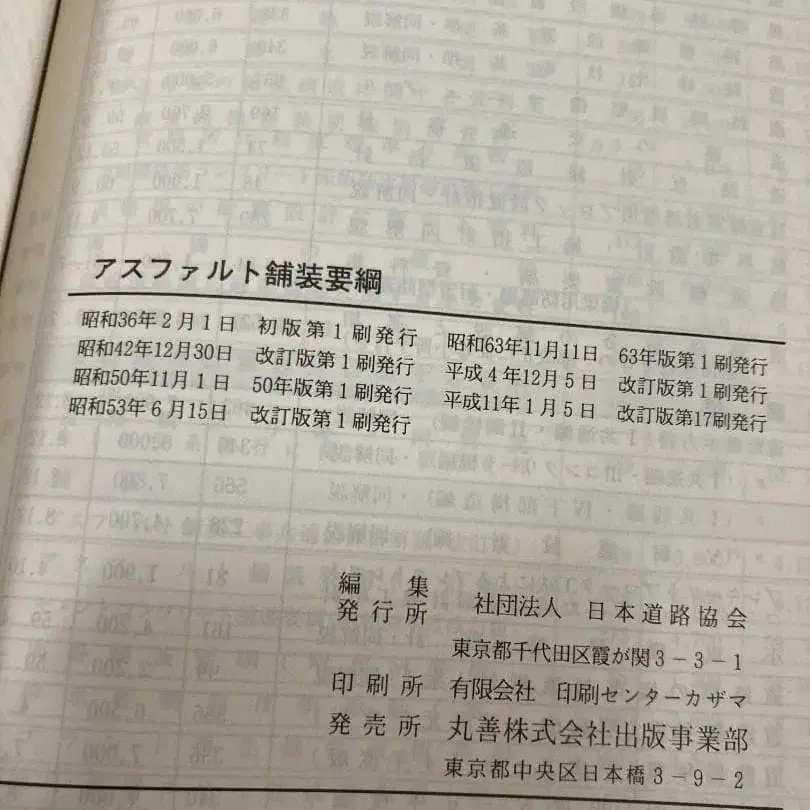 アスファルト舗装要綱
昭和36年2月1日 初版第1刷発行
昭和42年12月30日 改訂版第1刷発行
昭和50年11月1日 50年版第1刷発行
昭和53年6月15日 改訂版第1刷発行
昭和63年11月11日 63年版第1刷発行
平成4年12月5日 改訂版第1刷発行
平成11年1月5日 改訂版第17刷発行
編集
発行所 社団法人 日本道路協会
東京都千代田区霞が関3-3-1
印刷所 有限会社 印刷センターカザマ
発売所 丸善株式会社出版事業部
東京都中央区日本橋3-9-2